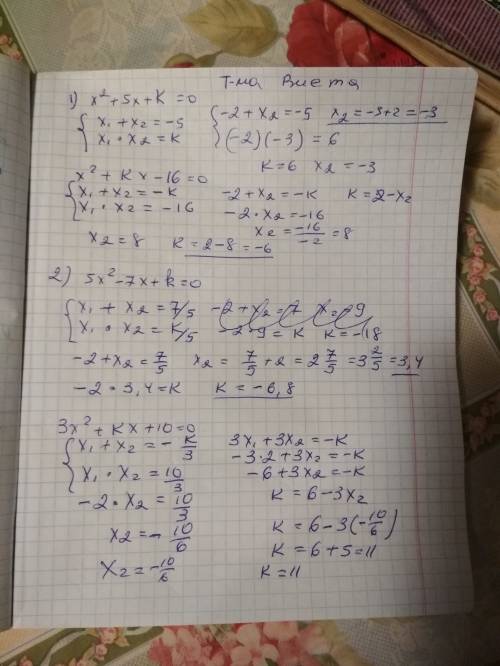 Т-ма Виета
1) x² + 5x + K = 0
{ x₁ + x₂ = -5
x₁ · x₂ = K
{ -2 + x₂ = -5 x₂ = -3+2 = -3
(-2)(-3) = 6
K = 6 x₂ = -3
x² + Kx - 16 = 0
{ x₁ + x₂ = -K -2 + x₂ = -K K = 2 - x₂
x₁ · x₂ = -16 -2 · x₂ = -16
x₂ = -16/-2 = 8
x₂ = 8 K = 2 - 8 = -6
2) 5x² - 7x + k = 0
{ x₁ + x₂ = 7/5 -2 + x₂ = 7 x = 9
x₁ · x₂ = K/5 -2 · 9 = K K = -18
-2 + x₂ = 7/5 x₂ = 7/5 + 2 = 2 7/5 = 3 2/5 = 3,4
-2 · 3,4 = K K = -6,8
3x² + Kx + 10 = 0
{ x₁ + x₂ = - K/3
x₁ · x₂ = 10/3
-2 · x₂ = 10/3
x₂ = - 10/6
x₂ = -10/6
3x₁ + 3x₂ = -K
-3·2 + 3x₂ = -K
-6 + 3x₂ = -K
K = 6 - 3x₂
K = 6 - 3(-10/6)
K = 6 + 5 = 11
K = 11